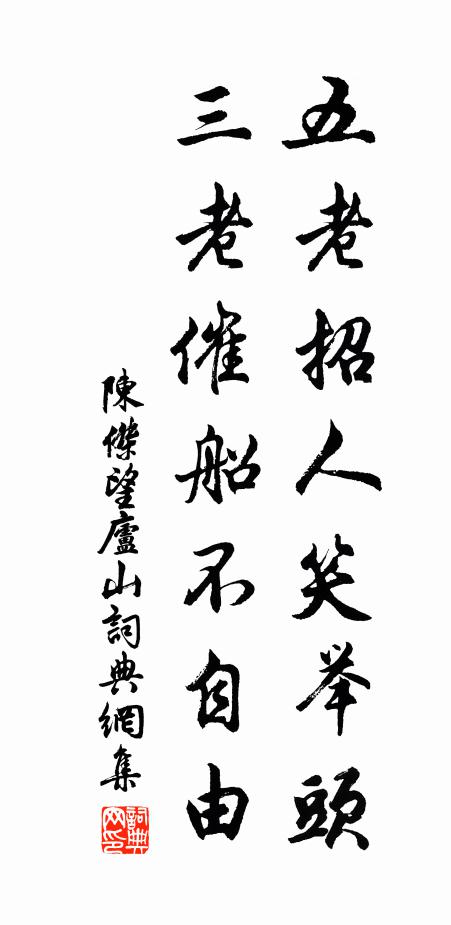 五老招人笑举頭
三老催船不自由
陳傑望廬山詞典網集
詞典网印